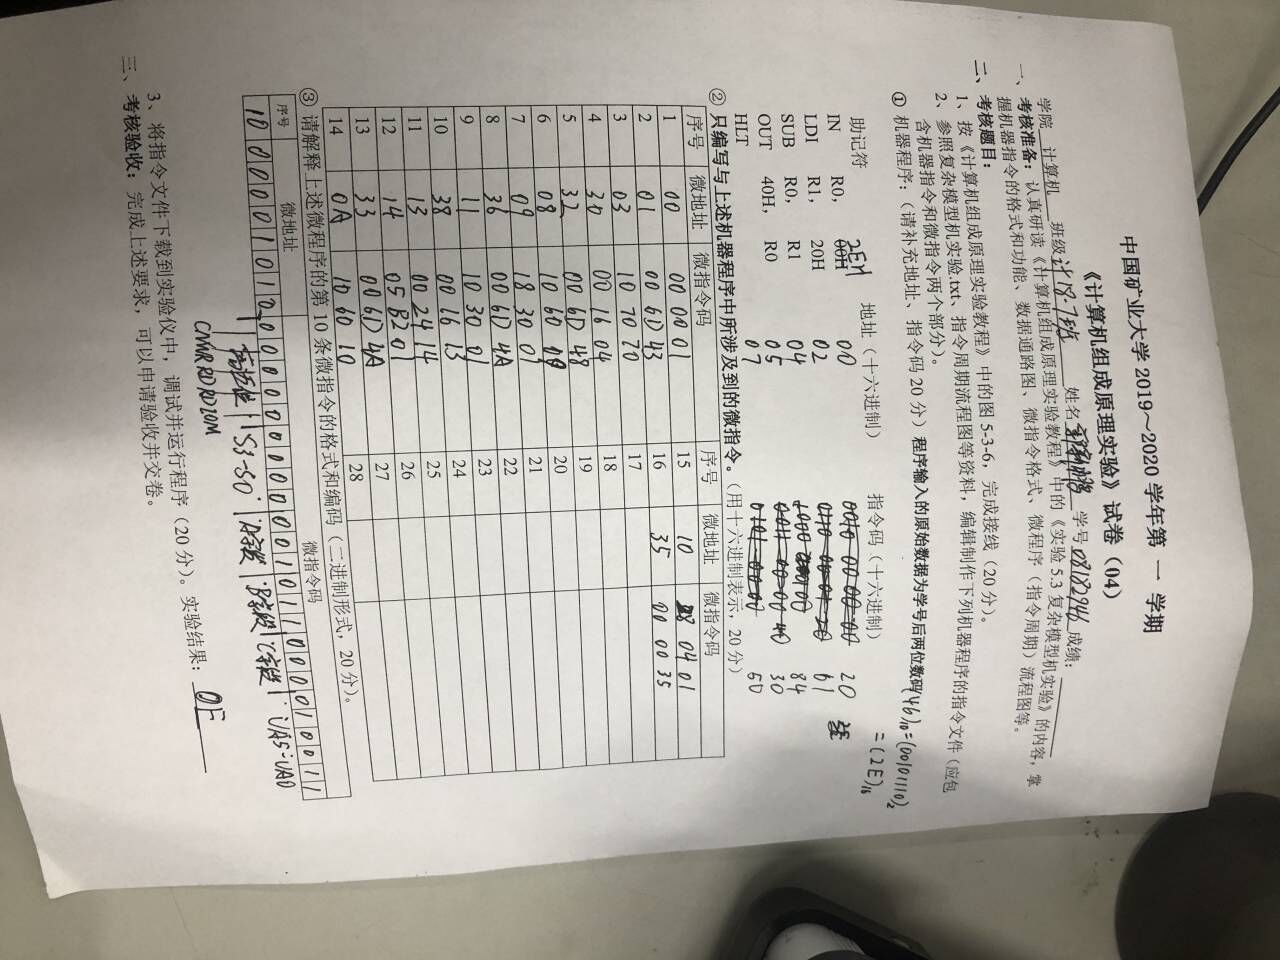 中国矿业大学 2019～2020 学年第 一 学期
《计算机组成原理实验》试卷（04）
学院 计算机 班级 计18-7班 姓名 学号 08182946 成绩：
一、考核准备：认真研读《计算机组成原理实验教程》中的《实验 5.3 复杂模型机实验》的内容，掌
握机器指令的格式和功能、数据通路图、微指令格式、微程序（指令周期）流程图等。
二、考核题目：
1、按《计算机组成原理实验教程》中的图 5-3-6，完成接线（20 分）。
2、参照复杂模型机实验.txt、指令周期流程图等资料，编辑制作下列机器程序的指令文件（应包
含机器指令和微指令两个部分）。
① 机器程序：（请补充地址、指令码 20 分）程序输入的原始数据为学号后两位数码 (46)10=(00101110)2
=(2E)16
助记符 地址（十六进制） 指令码（十六进制）
2EH
IN R0， 00H 00 0010 00 00 00 20
LDI R1， 20H 02 0110 00 01 20 61
SUB R0， R1 04 1000 84
OUT 40H， R0 05 0011 00 00 40 30
HLT 07 0101 00 00 50
② 只编写与上述机器程序中所涉及到的微指令。（用十六进制表示，20 分）
序号 微地址 微指令码 序号 微地址 微指令码
1 00 00 00 01 15 10 28 04 01
2 01 00 6D 43 16 35 00 00 35
3 03 10 70 70 17
4 30 00 16 04 18
5 32 00 6D 48 19
6 08 10 60 09 20
7 09 18 30 01 21
8 36 00 6D 4A 22
9 11 10 30 01 23
10 38 00 16 13 24
11 13 00 24 14 25
12 14 05 B2 01 26
13 33 00 6D 4A 27
14 0A 10 60 10 28
③ 请解释上述微程序的第 10 条微指令的格式和编码（二进制形式，20 分）。
序号 微地址 微指令码
10 0 0 0 0 1 0 1 0 0 0 0 0 0 0 0 0 0 0 0 1 0 1 1 0 0 0 0 1 0 0 1 1
S3-S0 A字段 B字段 C字段 UA5-UA0
CN WR RD IOM
3、将指令文件下载到实验仪中，调试并运行程序（20 分）。实验结果： 0E
三、考核验收：完成上述要求，可以申请验收并交卷。